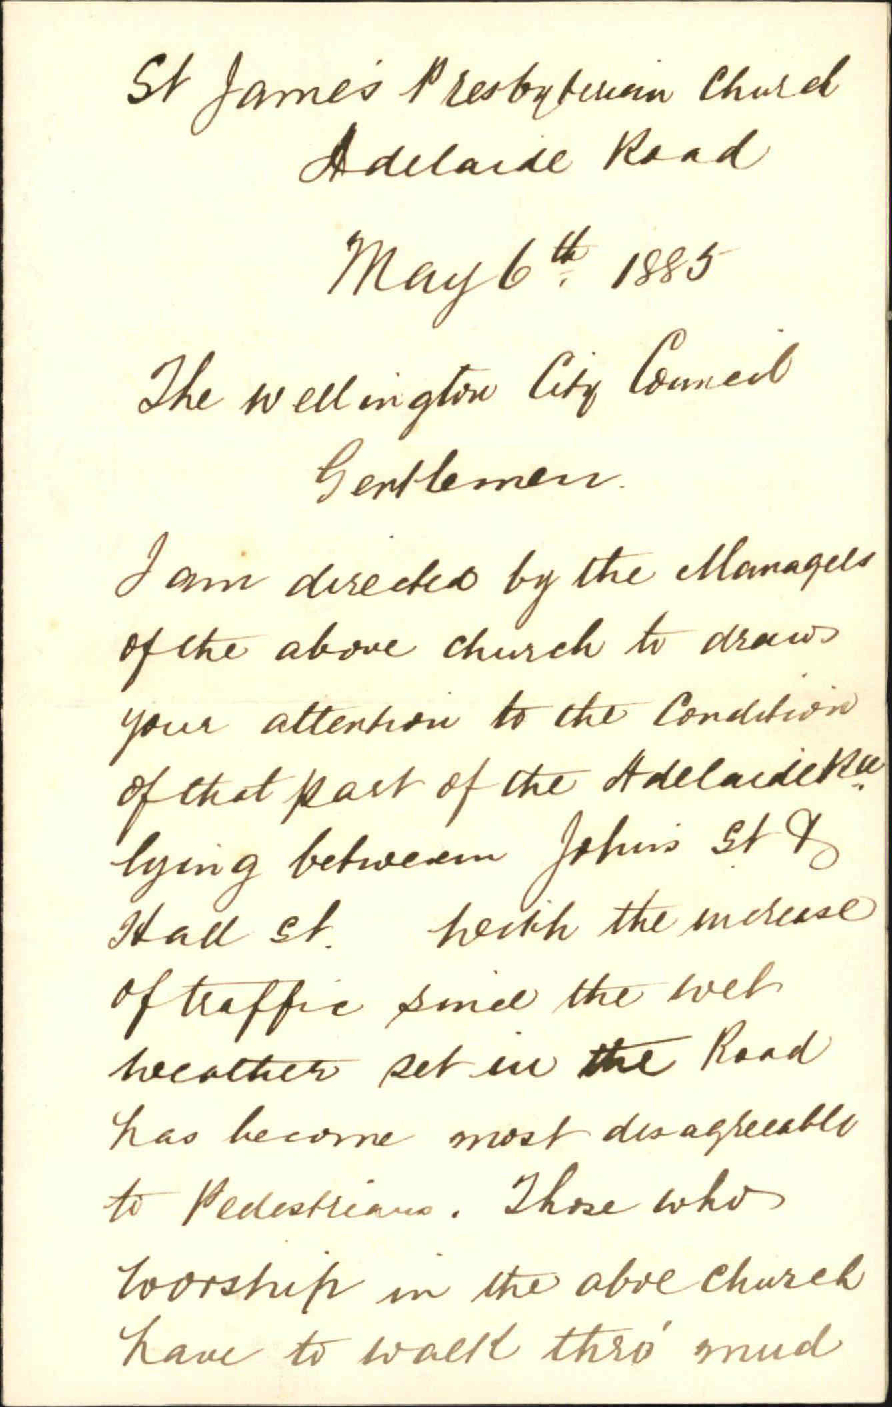 St Jame's Presbyterian Church
Adelaide Road
May 6th 1885
The Wellington City Council
Gentlemen.
I am directed by the Managers
of the above church to draw
your attention to the Condition
of that part of the Adelaide Rd
lying between John's St &
Hall St. With the increase
of traffic since the wet
weather set in the Road
has become most disagreeable
to Pedestrians. Those who
worship in the abve church
have to walk thro' mud